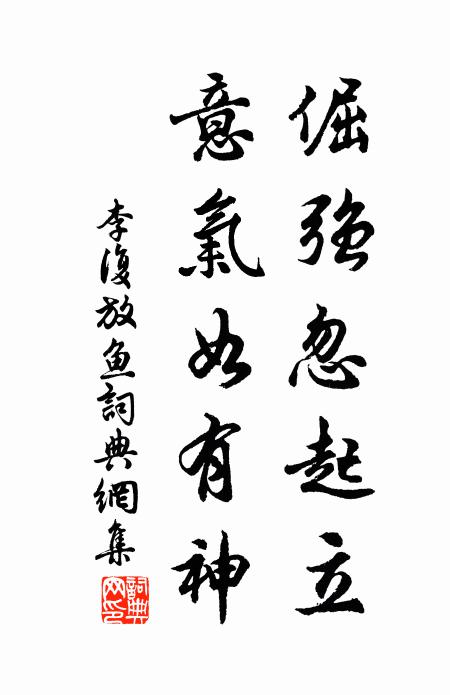 倔強忽起立
意氣如有神
李復放魚詞典網集
詞典网印